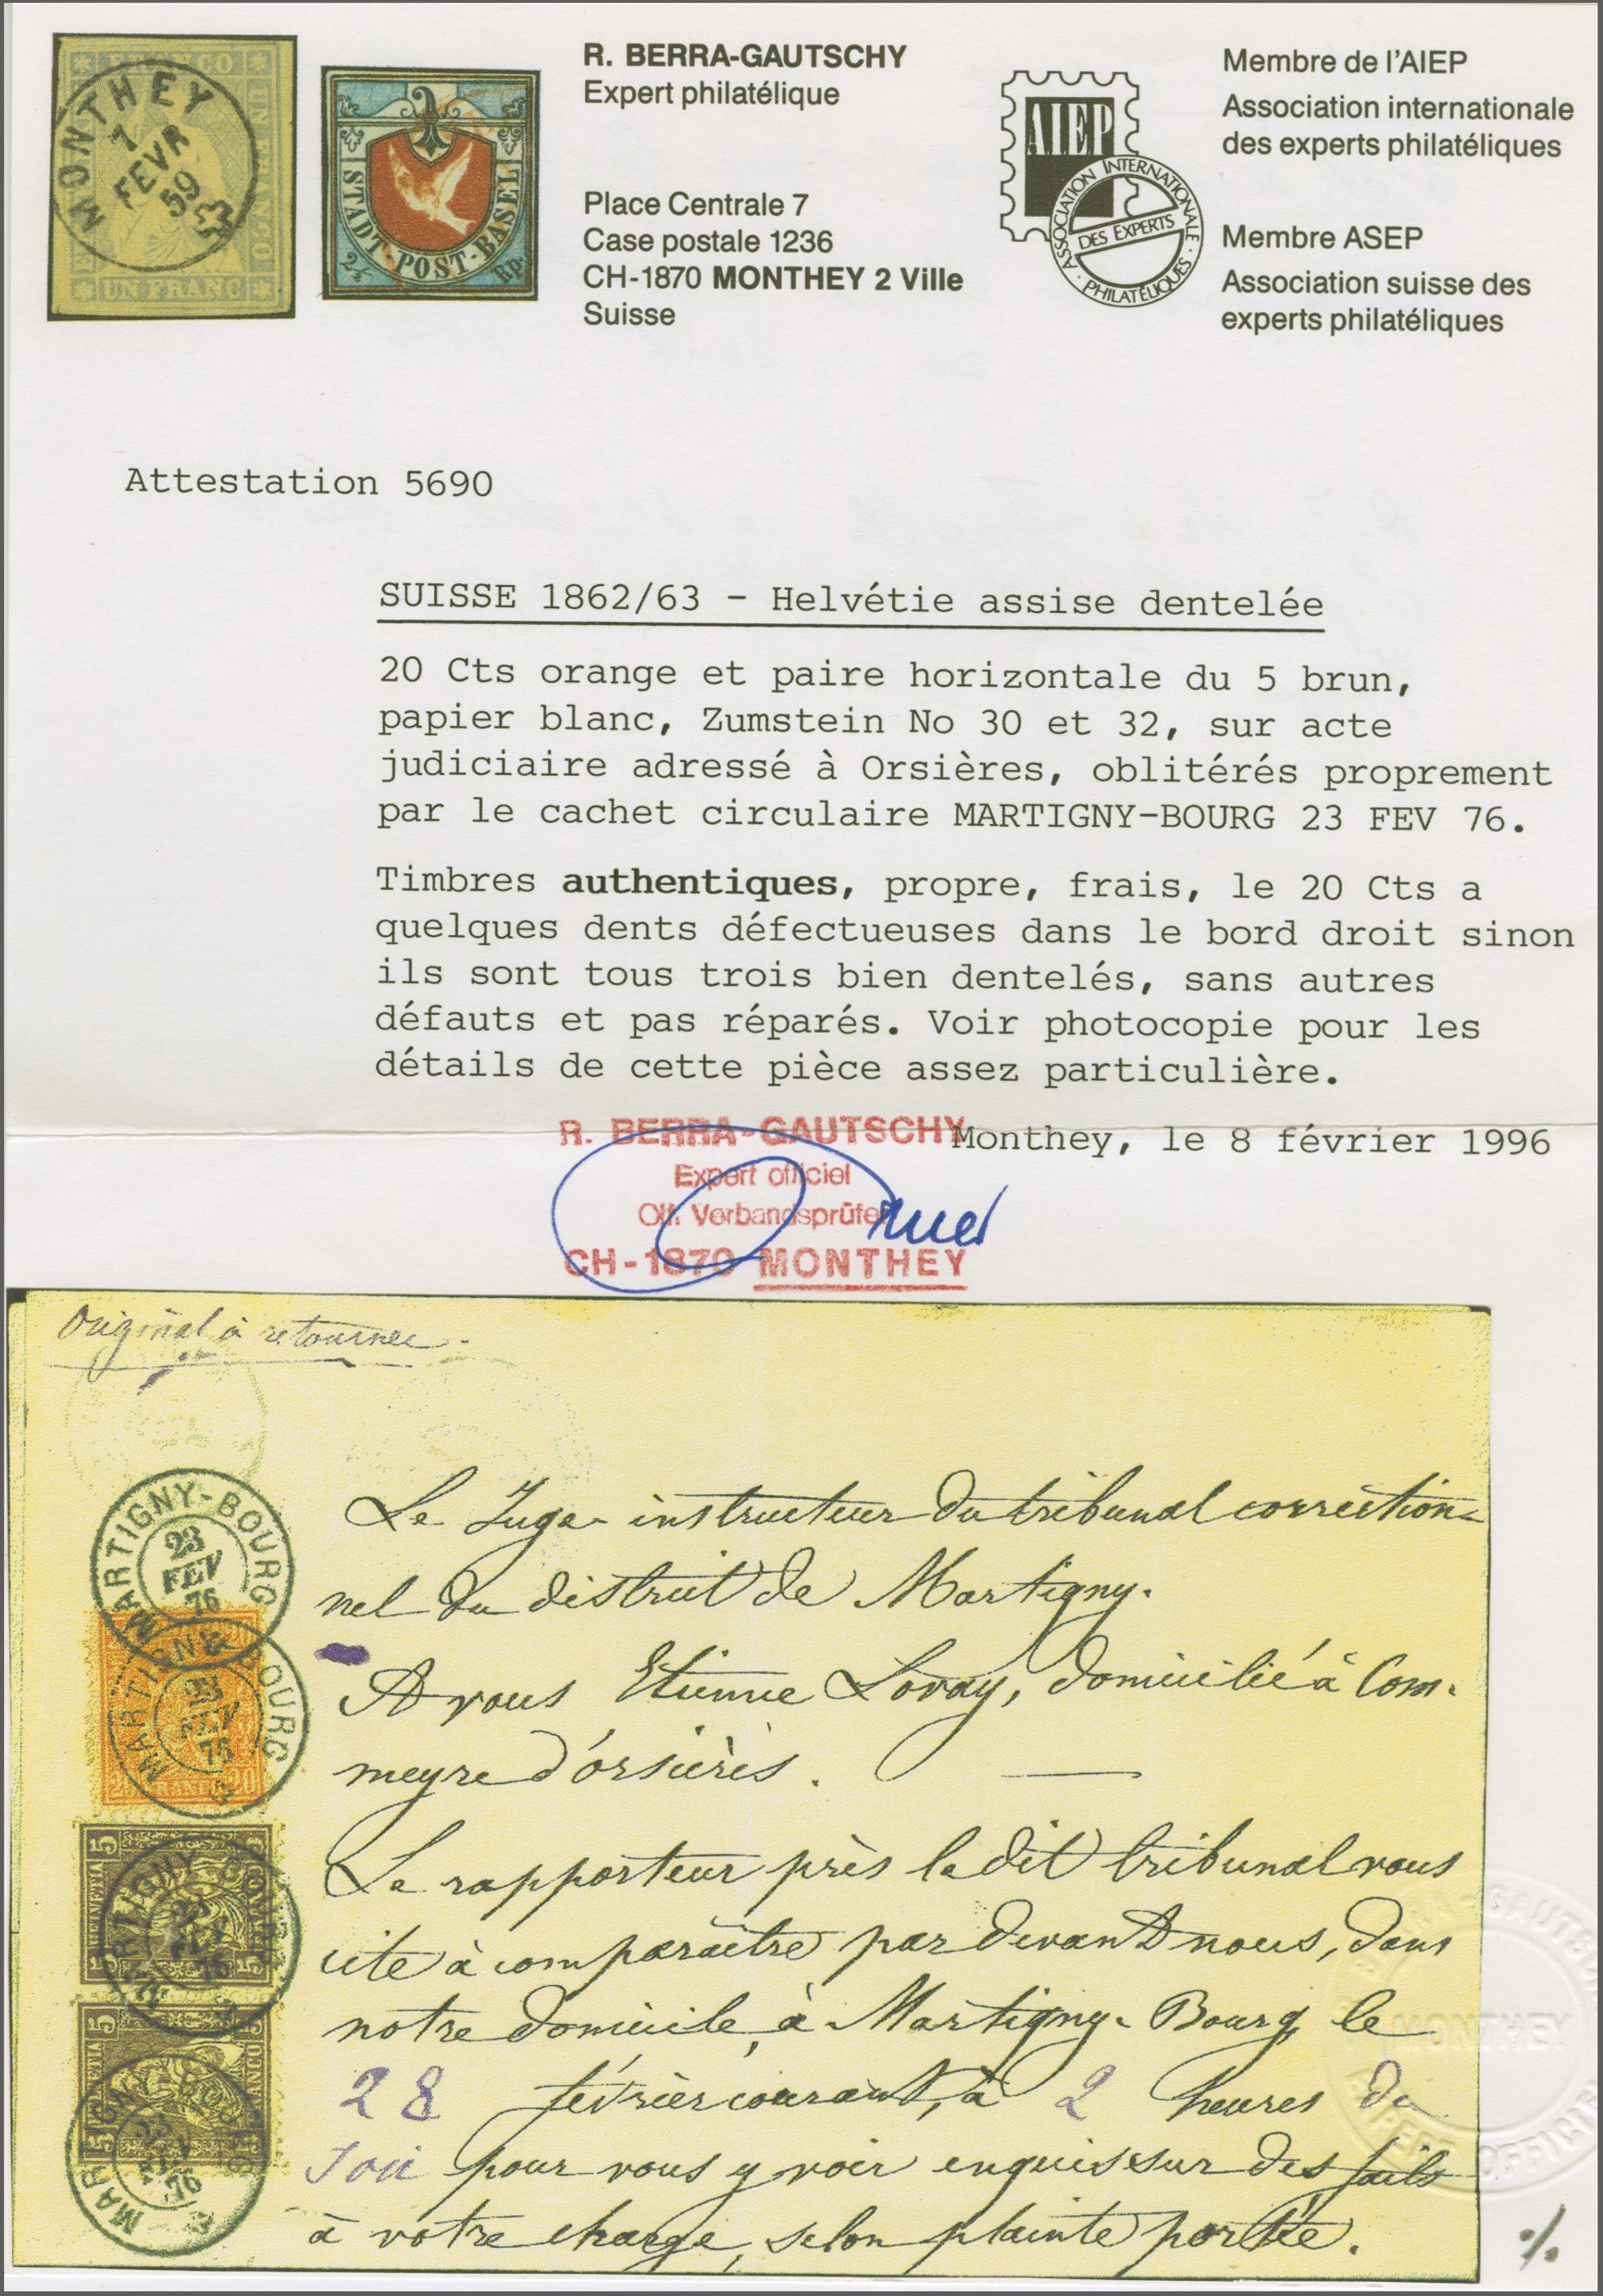 FRANCO
MONTHEY
7
FEVR
59
UN FRANC
STADT-POST-BASEL
2½ Rp.
R. BERRA-GAUTSCHY
Expert philatélique
Place Centrale 7
Case postale 1236
CH-1870 MONTHEY 2 Ville
Suisse
AIEP
ASSOCIATION INTERNATIONALE
DES EXPERTS
PHILATÉLIQUES
Membre de l'AIEP
Association internationale
des experts philatéliques
Membre ASEP
Association suisse des
experts philatéliques
Attestation 5690
SUISSE 1862/63 - Helvétie assise dentelée
20 Cts orange et paire horizontale du 5 brun,
papier blanc, Zumstein No 30 et 32, sur acte
judiciaire adressé à Orsières, oblitérés proprement
par le cachet circulaire MARTIGNY-BOURG 23 FEV 76.
Timbres authentiques, propre, frais, le 20 Cts a
quelques dents défectueuses dans le bord droit sinon
ils sont tous trois bien dentelés, sans autres
défauts et pas réparés. Voir photocopie pour les
détails de cette pièce assez particulière.
Monthey, le 8 février 1996
R. BERRA-GAUTSCHY
Expert officiel
Off. Verbandsprüfer
CH-1870 MONTHEY
Original à retourner.
MARTIGNY-BOURG
23
FEV
76
Le Juge instructeur du tribunal correction-
nel du district de Martigny.
A vous Etienne Lovay, domicilié à Com-
meyre d'orsières.
Le rapporteur près le dit tribunal vous
cite à comparaître par devant nous, dans
notre domicile, à Martigny-Bourg le
28 février courant, à 2 heures du
soir pour vous y voir enquis sur des faits
à votre charge, selon plainte portée.
MARTIGNY BOURG
23
76
20 FRANCO 20
5 HELVETIA 5
MARTIGNY
76
5
MARTIGNY
76
MONTHEY
EXPERT OFFICIEL
./.